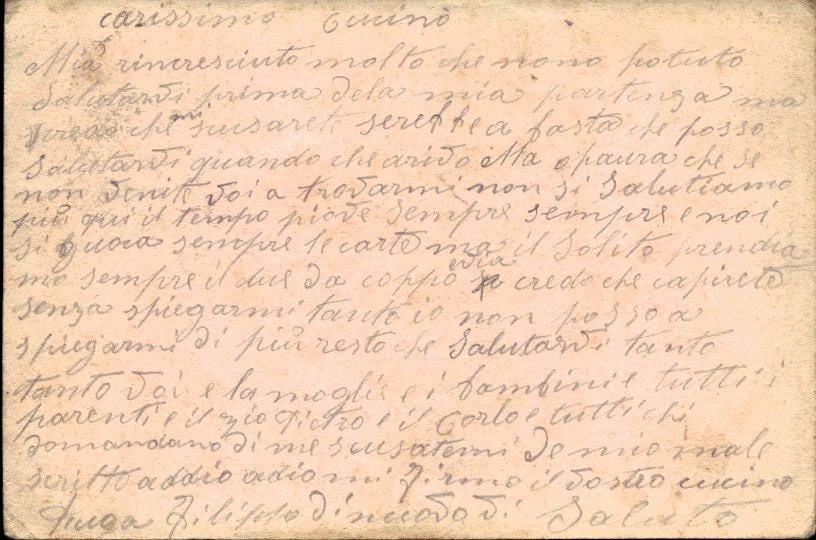 carissimo cucino
Mia rincresciuto molto che nono potuto
Salutarvi prima dela mia partenza ma
prego che mi scusarete sarebbe a basta che posso
Salutarvi quando che arivo Ma o paura che se
non venite voi a trovarmi non si Salutiamo
più qui il tempo piove sempre sempre e noi
si guoca sempre le carte ma il Solito prendia
mo sempre il due da coppo e via credo che capirete
senza spiegarmi tanto io non posso a
spiegarmi di più resto che Salutarvi tanto
tanto voi e la moglie e i bambini e tutti i
parenti e il zio Pietro e il Corlo e tutti chi
domandano di me scusatemi de mio male
scritto addio adio mi firmo il vostro cucino
Filippo di nuovo vi Saluto